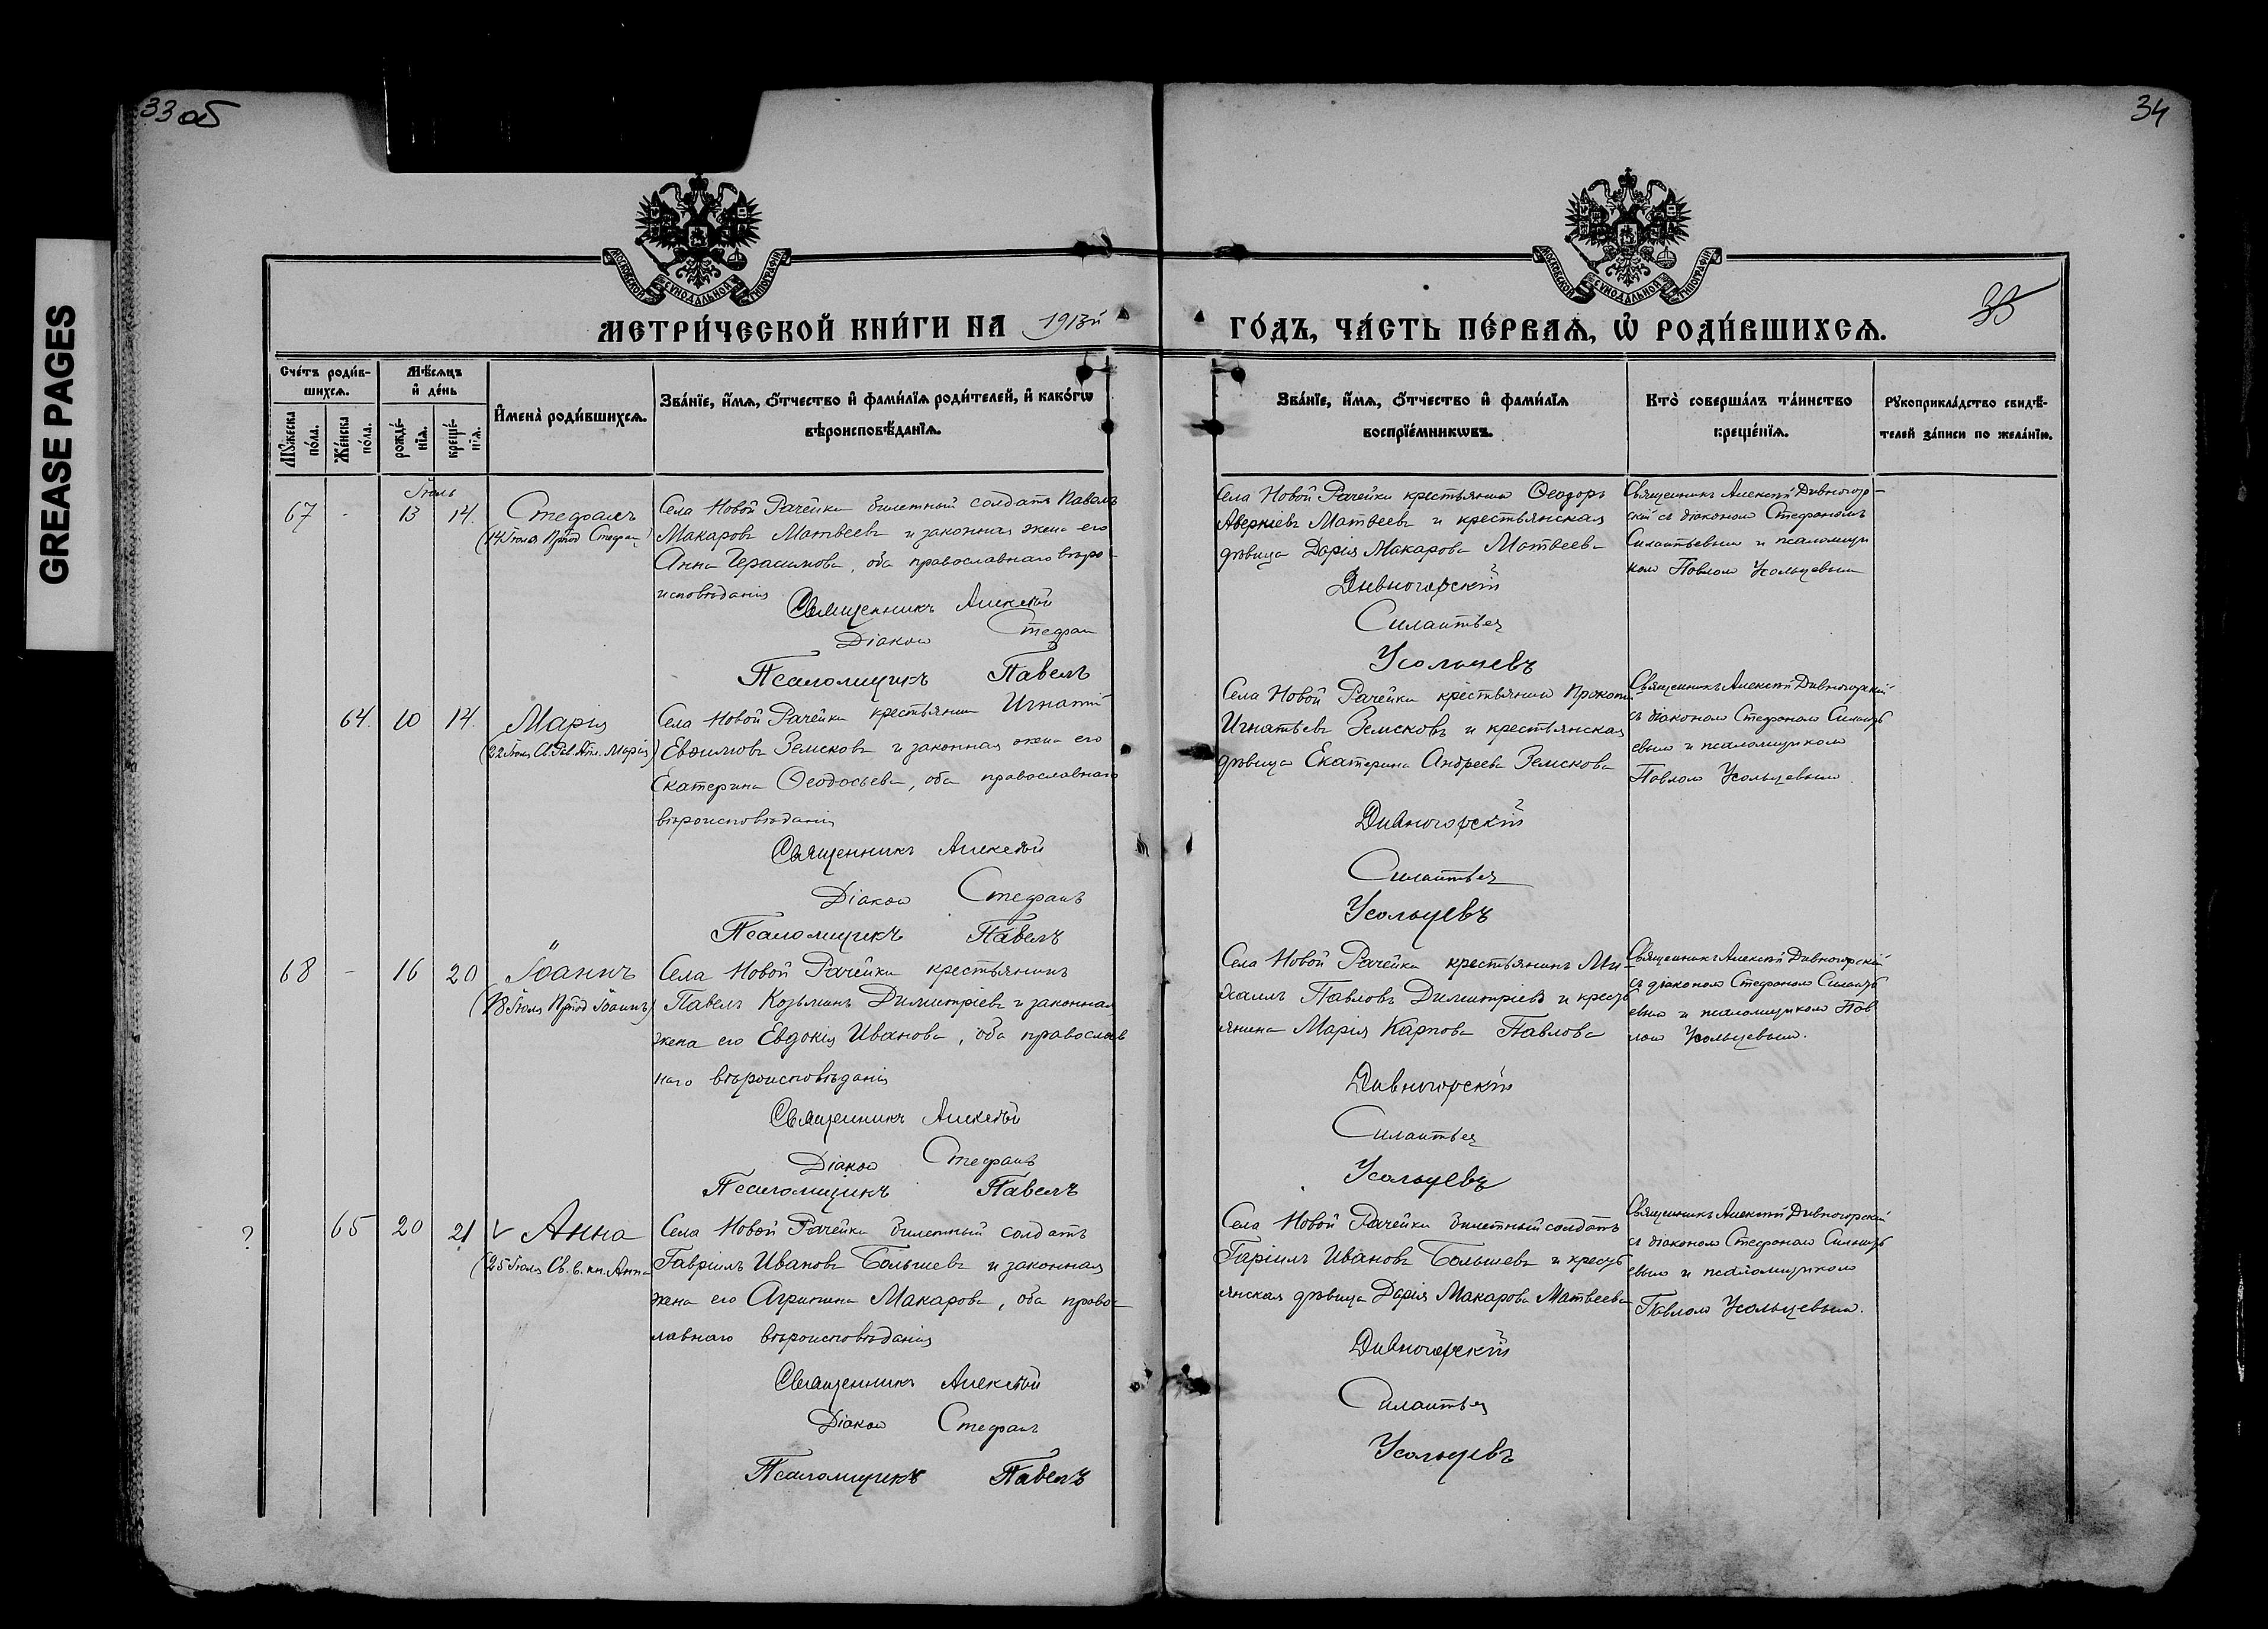 33 об
34
GREASE PAGES
МОСКОВСКОЙ СѴНОДАЛЬНОЙ ТИПОГРАФІИ
МОСКОВСКОЙ СѴНОДАЛЬНОЙ ТИПОГРАФІИ
МЕТРИ́ЧЕСКОЙ КНИ́ГИ НА 1913й
ГО́ДЪ, ЧА́СТЬ ПЕ́РВАѦ, Ѡ҆ РОДИ́ВШИХСѦ.
35
Сче́тъ роди́в-
шихсѧ.
Мѣ́сѧцъ
и҆ де́нь
Мꙋ́жеска
по́ла.
Же́нска
по́ла.
рожде́-
нїѧ.
креще́-
нїѧ.
И҆мена̀ роди́вшихсѧ.
Зва́нїе, и҆́мѧ, ѻ҆́тчество и҆ фами́лїѧ роди́телей, и҆ како́гѡ
вѣроисповѣ́данїѧ.
Зва́нїе, и҆́мѧ, ѻ҆́тчество и҆ фами́лїѧ
воспрїе́мникѡвъ.
Кто̀ соверша́лъ та́инство
креще́нїѧ.
Рꙋкоприкла́дство свидѣ́-
телей за́писи по жела́нїю.
Іюль
67 - 13 14. Стефанъ
(14 Іюля Прпод Стефан)
Села Новой Рачейки билетный солдатъ Павелъ
Макаровъ Матвеевъ и законная жена его
Анна Герасимова, оба православнаго вѣро-
исповѣданія
Священникъ Алексѣй
Діаконъ Стефан
Псаломщикъ Павелъ
Села Новой Рачейки крестьянинъ Ѳеодоръ
Аверкіевъ Матвеевъ и крестьянская
дѣвица Дарія Макарова Матвеева
Дивногорскій
Силантьев
Усольцевъ
Священникъ Алексѣй Дивногор-
скій съ діакономъ Стефаномъ
Силантьевымъ и псаломщи
комъ Павломъ Усольцевымъ
64. 10 14. Марія
(22 Іюля Св. Рав. Ап. Марія)
Села Новой Рачейки крестьянинъ Игнатій
Евфимовъ Земсковъ и законная жена его
Екатерина Ѳеодосьева, оба православнаго
вѣроисповѣданія
Священникъ Алексѣй
Діаконъ Стефанъ
Псаломщикъ Павелъ
Села Новой Рачейки крестьянинъ Прокопій
Игнатьевъ Земсковъ и крестьянская
дѣвица Екатерина Андреева Земскова
Дивногорскій
Силантьев
Усольцевъ
Священникъ Алексѣй Дивногорскій
съ діакономъ Стефаномъ Силанть
евымъ и псаломщикомъ
Павломъ Усольцевымъ.
68 - 16 20 Іоаннъ
(18 Іюля Прпод Іоаннъ)
Села Новой Рачейки крестьянинъ
Павелъ Козьминъ Димитріевъ и законная
жена его Евдокія Иванова, оба православ
наго вѣроисповѣданія
Священникъ Алексѣй
Діаконъ Стефанъ
Псаломщикъ Павелъ
Села Новой Рачейки крестьянинъ Ми-
хаилъ Павловъ Димитріевъ и кресть
янина Марія Карпова Павлова
Дивногорскій
Силантьев
Усольцевъ
Священникъ Алексѣй Дивногорскій
съ діакономъ Стефаномъ Силанть
евымъ и псаломщикомъ Пав
ломъ Усольцевымъ.
? 65 20 21 √ Анна
(25 Іюля Св. в. кн. Анна
Села Новой Рачейки билетный солдатъ
Гавріилъ Ивановъ Большевъ и законная
жена его Агрипина Макарова, оба право-
лавнаго вѣроисповѣданія
Священникъ Алексѣй
Діаконъ Стефанъ
Псаломщикъ Павелъ
Села Новой Рачейки билетный солдатъ
Гаріилъ Ивановъ Большевъ и кресть
янская дѣвица Дарія Макарова Матвеева
Дивногорскій
Силантьев
Усольцевъ
Священникъ Алексѣй Дивногорскій
съ діакономъ Стефаномъ Силанть
евымъ и псаломщикомъ
Павломъ Усольцевымъ.